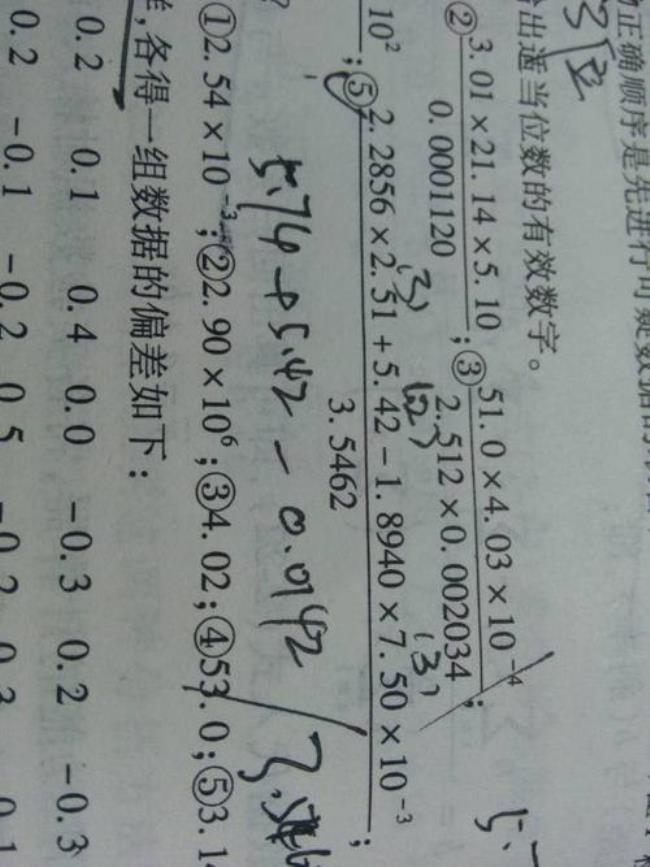 正确顺序是先进行可疑数据的
出适当位数的有效数字。
② 3.01×21.14×5.10
0.0001120
; ③ 51.0×4.03×10⁻⁴
2.512×0.002034
;
10²
; ⑤ 2.2856×2.51+5.42-1.8940×7.50×10⁻³
3.5462
;
(3)
(2)
(3)
5.74+5.42-0.0142
①2.54×10⁻³;②2.90×10⁶;③4.02;④53.0;⑤3.1
,各得一组数据的偏差如下:
0.2 0.1 0.4 0.0 -0.3 0.2 -0.3
0.2 -0.1 -0.2 0.5 -0.2 0.3 0.1